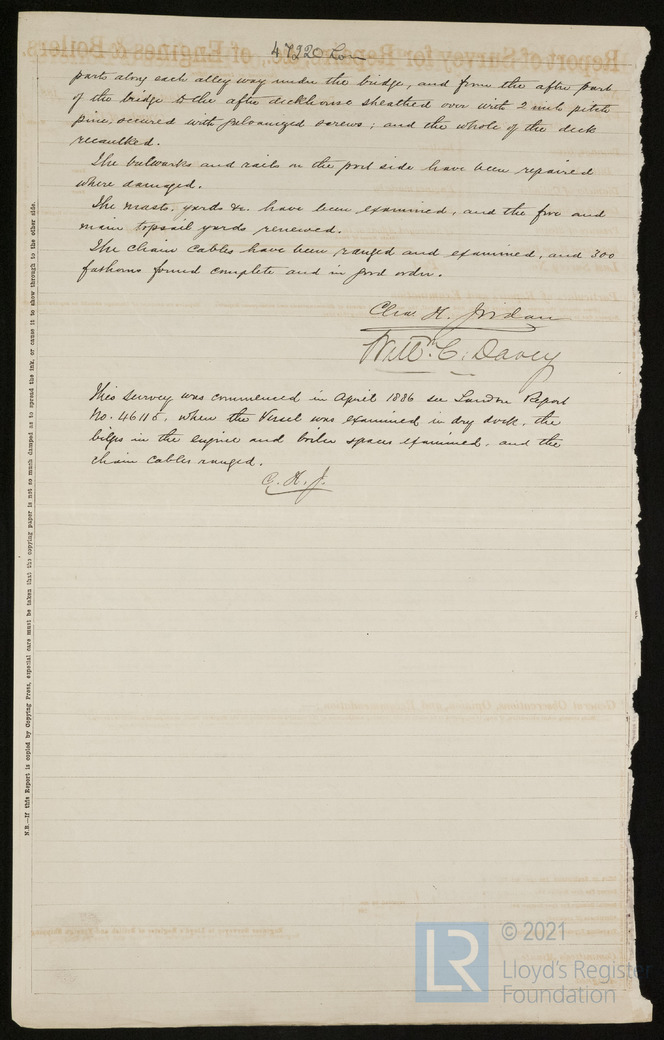 47220 Lon
parts along each alley way under the bridge, and from the after part
of the bridge to the after deckhouse sheathed over with 2 inch pitch
pine, secured with galvanized screws; and the whole of the deck
recaulked.
The bulwarks and rails on the port side have been repaired
where damaged.
The masts, yards &c. have been examined, and the fore and
main topsail yards renewed.
The chain cables have been ranged and examined, and 300
fathoms found complete and in good order.
Chas. H. Jordan
Willm. C. Davey
This survey was commenced in April 1886 see London Report
No. 46115, when the Vessel was examined in dry dock, the
bilges in the engine and boiler spaces examined, and the
chain cables ranged.
C. H. J.
N.B.—If this Report is copied by Copying Press, especial care must be taken that the copying paper is not so much damped as to spread the ink, or cause it to show through to the other side.
Report of Survey for Repairs, &c., of Engines & Boilers.
General Observations, Opinion, and Recommendation
LR
© 2021
Lloyd's Register
Foundation